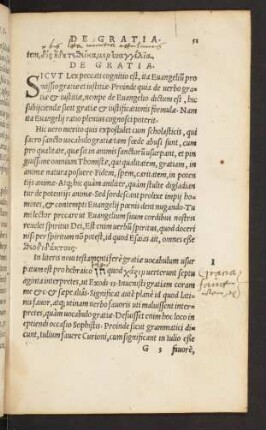 DE GRATIA.
51
tem,
DE GRATIA.
SICVT Lex peccati cognitio est, ita Euangeliū pro
missio gratiæ et iustitiæ. Proinde quia de verbo gra
tiæ & iustitiæ, nempe de Euangelio dictum est, huc
subijciendæ sunt gratiæ et iustificationis formulæ. Nam
ita Euangelij ratio plenius cognosci poterit.
Hic uero merito quis expostulet cum scholasticis, qui
sacro sancto uocabulo gratiæ tam fœde abusi sunt, cum
pro qualitate, quæ sit in animis sanctorū usurpant, et pes
simi omnium Thomistæ, qui qualitatem, gratiam, in
animæ natura posuere: Fidem, spem, caritatem, in poten
tijs animæ. Atq; hic quàm aniliter, quàm stulte digladian
tur de potentijs animæ. Sed sordescant profecto impij ho
mines, & contempti Euangelij pœnas dent nugarum. Tu
mi lector precare ut Euangelium suum cordibus nostris
reuelet spiritus Dei, Est enim verbū spiritus, quod doceri
nisi per spiritum nō potest, id quod Esaias ait, omnes esse
In libris noui testamenti ferè gratiæ uocabulum usur
patum est pro hebraico חן quod χάρις uerterunt septu
aginta interpretes, ut Exodi
me &c & sæpe aliàs. Significat autē planè id quod lati
nis fauor, atq; utinam verbo fauoris uti maluissent inter
pretes, quàm uocabulo gratiæ. Defuisset enim hoc loco in
eptiendi occasio Sophistis. Proinde sicut grammatici di
cunt, Iulium fauere Curioni, cum significant in Iulio esse
G 3 fauorē,
I